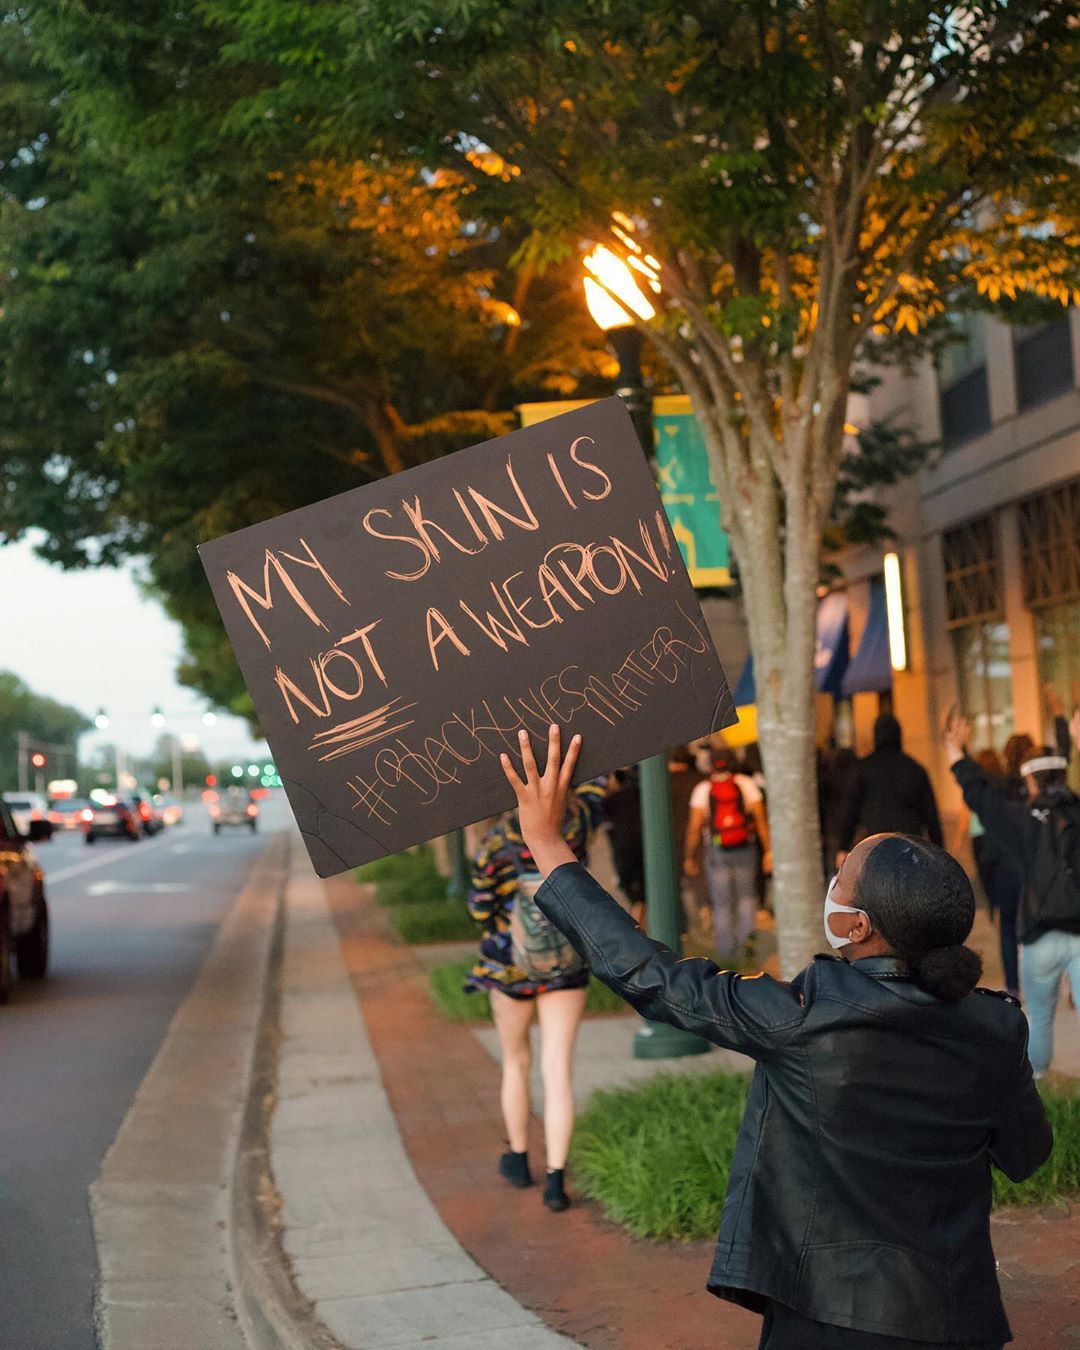 MY SKIN IS
NOT A WEAPON!
#BLACKLIVESMATTER!